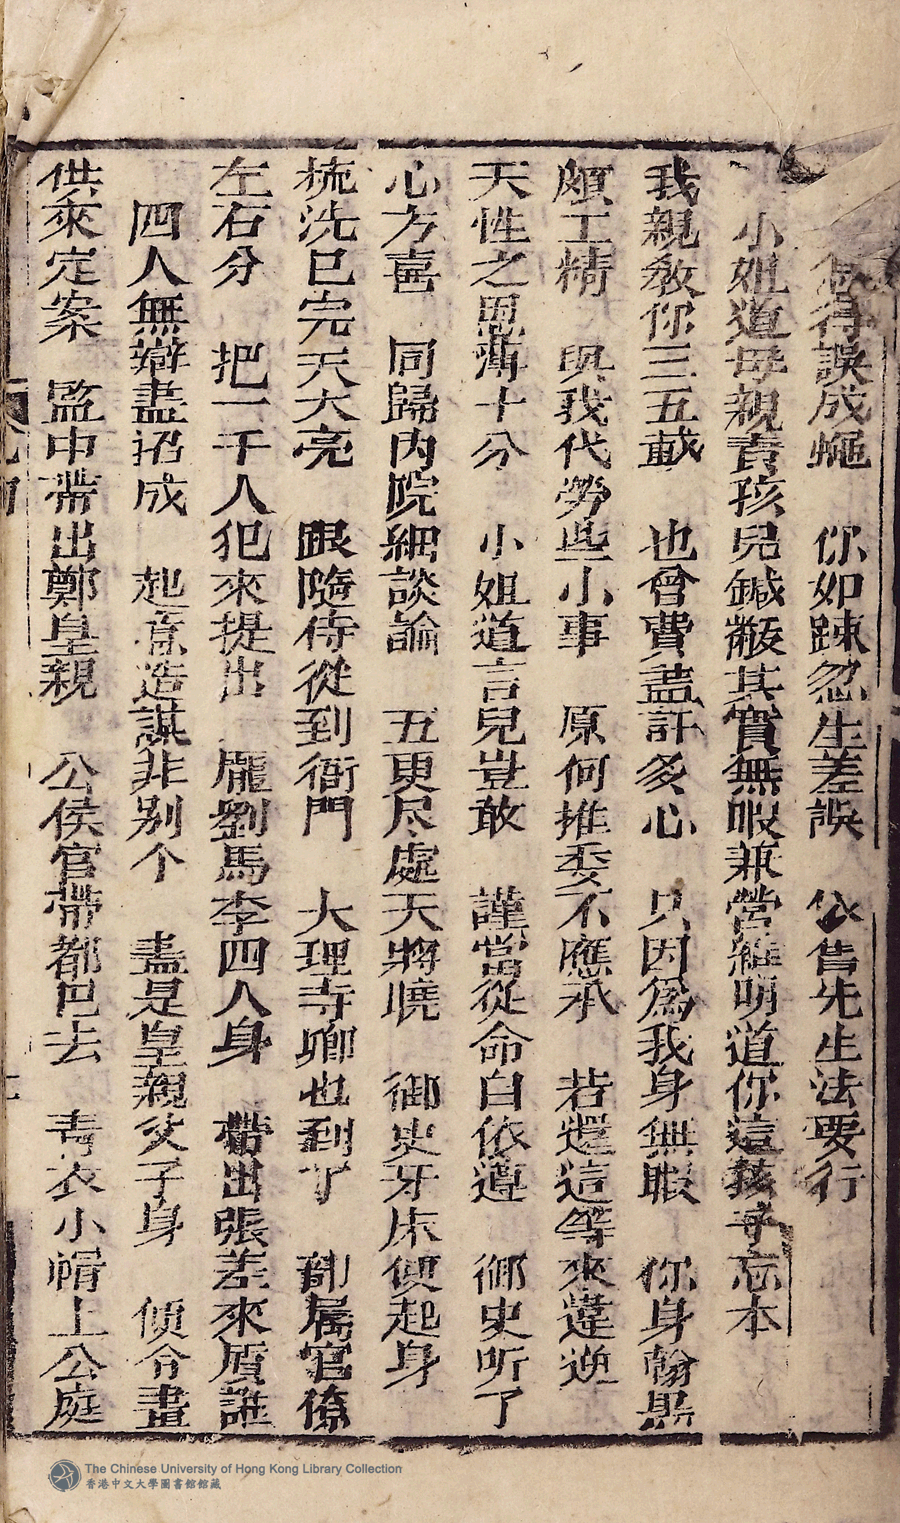 得誤成蠅　你如踈忽生差誤　公告先生法要行
小姐道母親責孩兒鍼黹其實無暇兼營維明道你這孩子忘本
我親教你三五載　也曾費盡許多心　只因為我身無暇　你身翰墨
頗工精　與我代勞些小事　原何推委不應承　若還這等來違逆
天性之恩薄十分　小姐道言兒豈敢　謹當從命白依遵　御史听了
心方喜　同歸內院細談論　五更尽處天將曉　御史牙床便起身
梳洗已完天大亮　跟隨侍從到衙門　大理寺卿也到了　部属官僚
左右分　把一千人犯來提出　龐劉馬李四人身　帶出張差來質誰
四人無辯盡招成　起意造謀非别个　盡是皇親父子身　便令畫
供來定案　監中帶出鄭皇親　公侯官帶都巴去　青衣小帽上公庭
The Chinese University of Hong Kong Library Collection
香港中文大學圖書館館藏